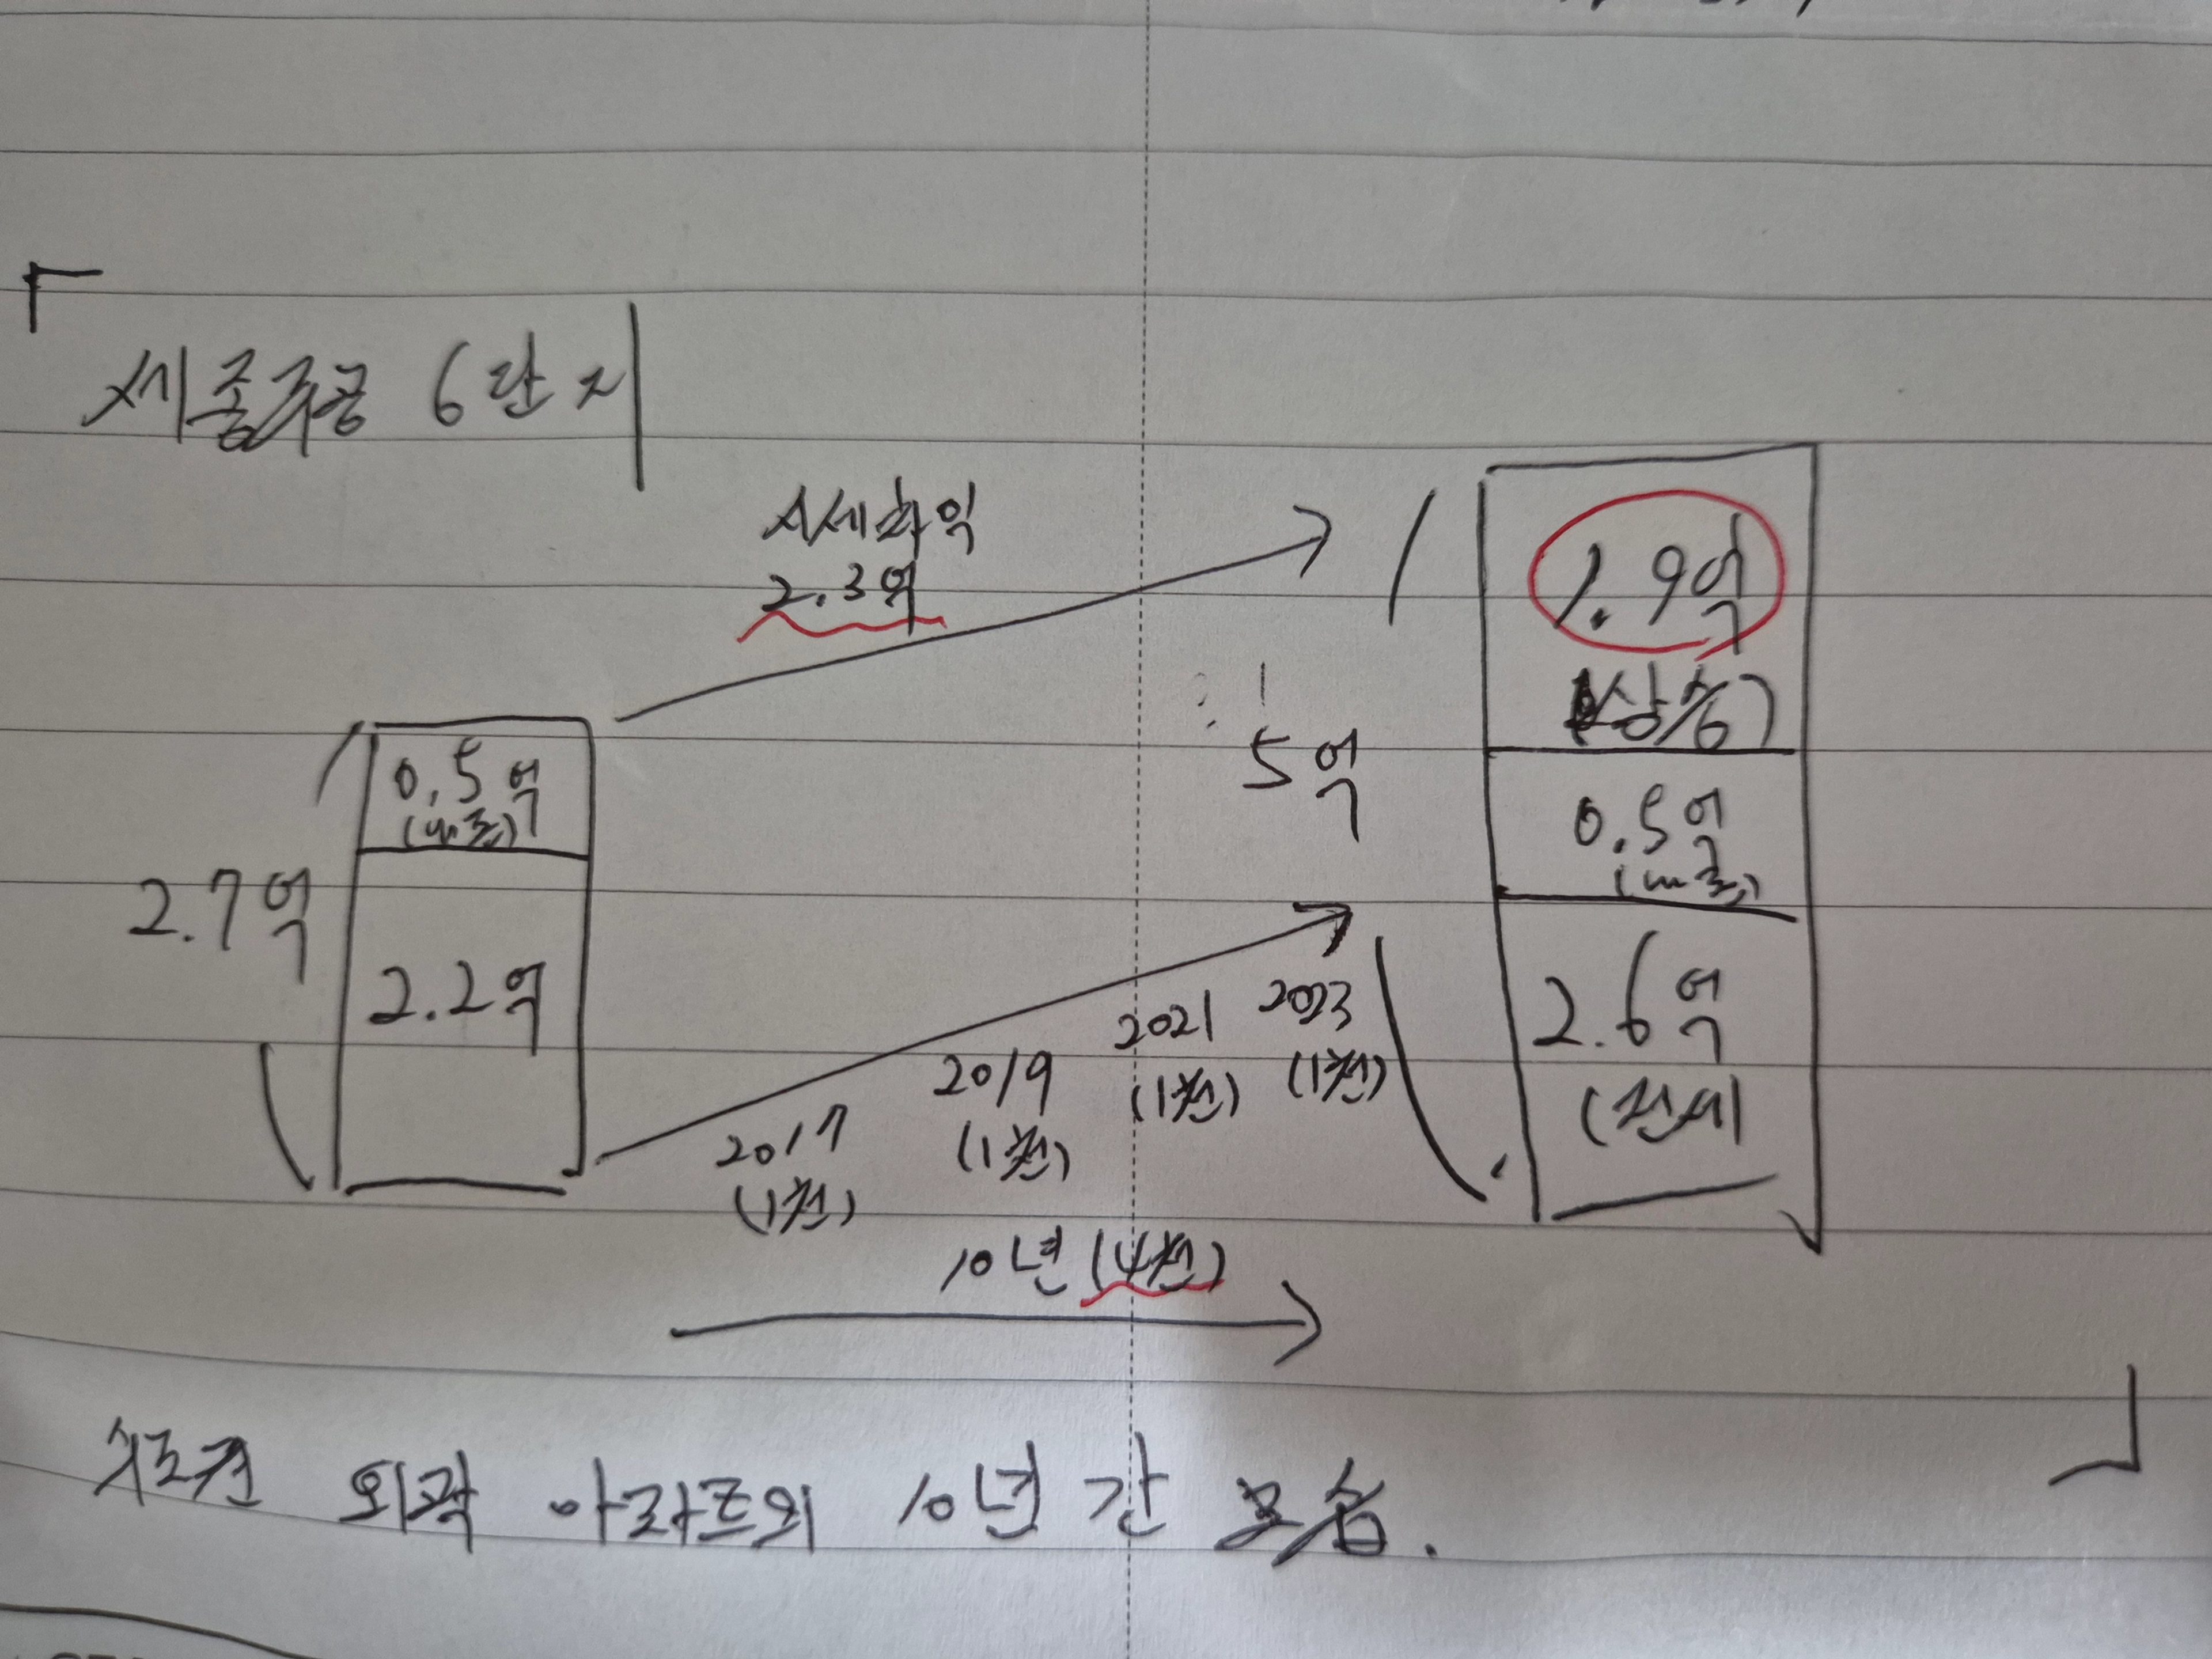 세종주공 6단지
시세차익
2.3억
1.9억
(상승)
5억
0.5억
2.7억
2.2억
0.5억
2.6억
(전세)
2017
(1천)
2019
(1천)
2021
(1천)
2023
(1천)
10년 (4천)
수도권 외곽 아파트의 10년간 모습.